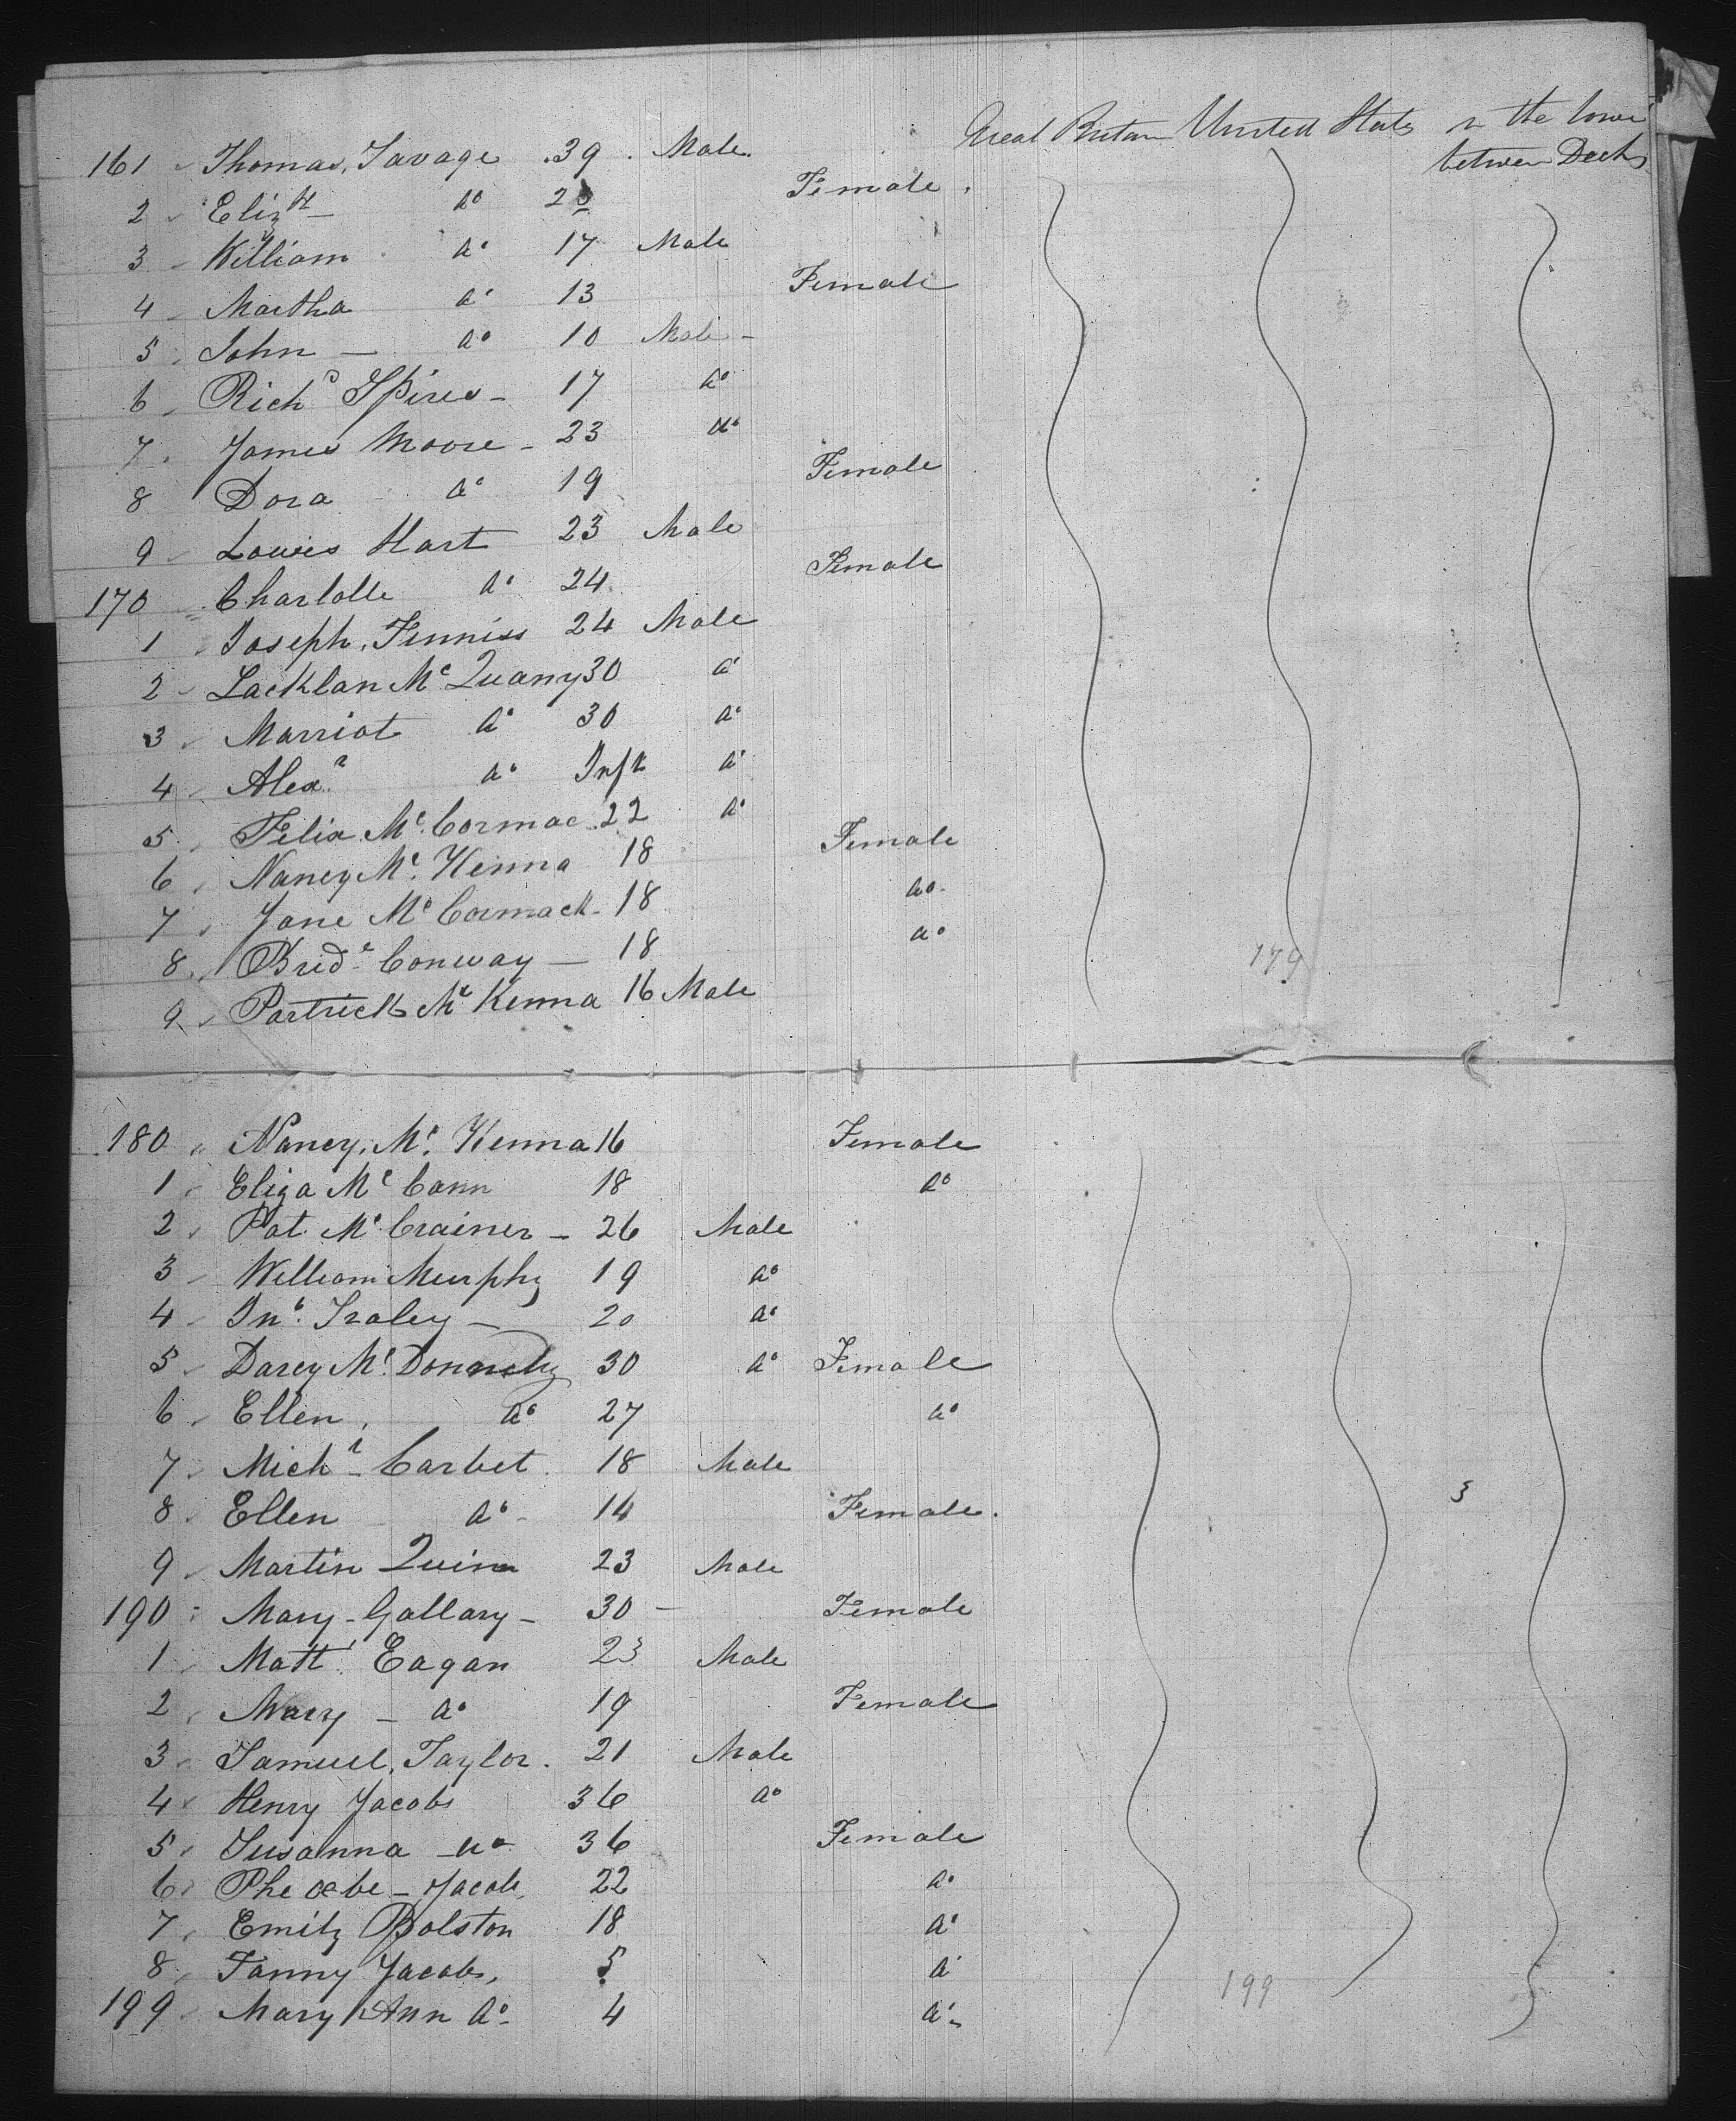 Great Britain United States in the lower
between Decks
161 Thomas Savage 39 Male
2 Elizth do 25 Female
3 William do 17 Male
4 Martha do 13 Female
5 John — do 10 Male
6 Richd Spires 17 do
7 James Moore 23 do
8 Dora do 19 Female
9 Louis Hart 23 Male
170 Charlotte do 24 Female
1 Joseph Finniss 24 Male
2 Lacklan Mc Quany 30 do
3 Marriot do 30 do
4 Alexr do Inft do
5 Felix Mc Cormac 22 do
6 Nancy Mc Kenna 18 Female
7 Jane Mc Cormack 18 do
8 Bridt Conway — 18 do
9 Partrick Mc Kenna 16 Male
179
180 Nancy Mc Kenna 16 Female
1 Eliza Mc Cann 18 do
2 Pat Mc Crainer — 26 Male
3 William Murphy 19 do
4 Jno Traley — 20 do
5 Darcy Mc Donnely 30 do Female
6 Ellen do 27 do
7 Michl Carbet 18 Male
8 Ellen do 14 Female
9 Martin Quinn 23 Male
190 Mary Gallary — 30 — Female
1 Matt Eagan 23 Male
2 Mary — do 19 Female
3 Samuel Taylor 21 Male
4 Henry Jacobs 36 do
5 Susanna do 36 Female
6 Phœbe Jacobs 22 do
7 Emily Bolston 18 do
8 Fanny Jacobs 5 do
199 Mary Ann do 4 do
199